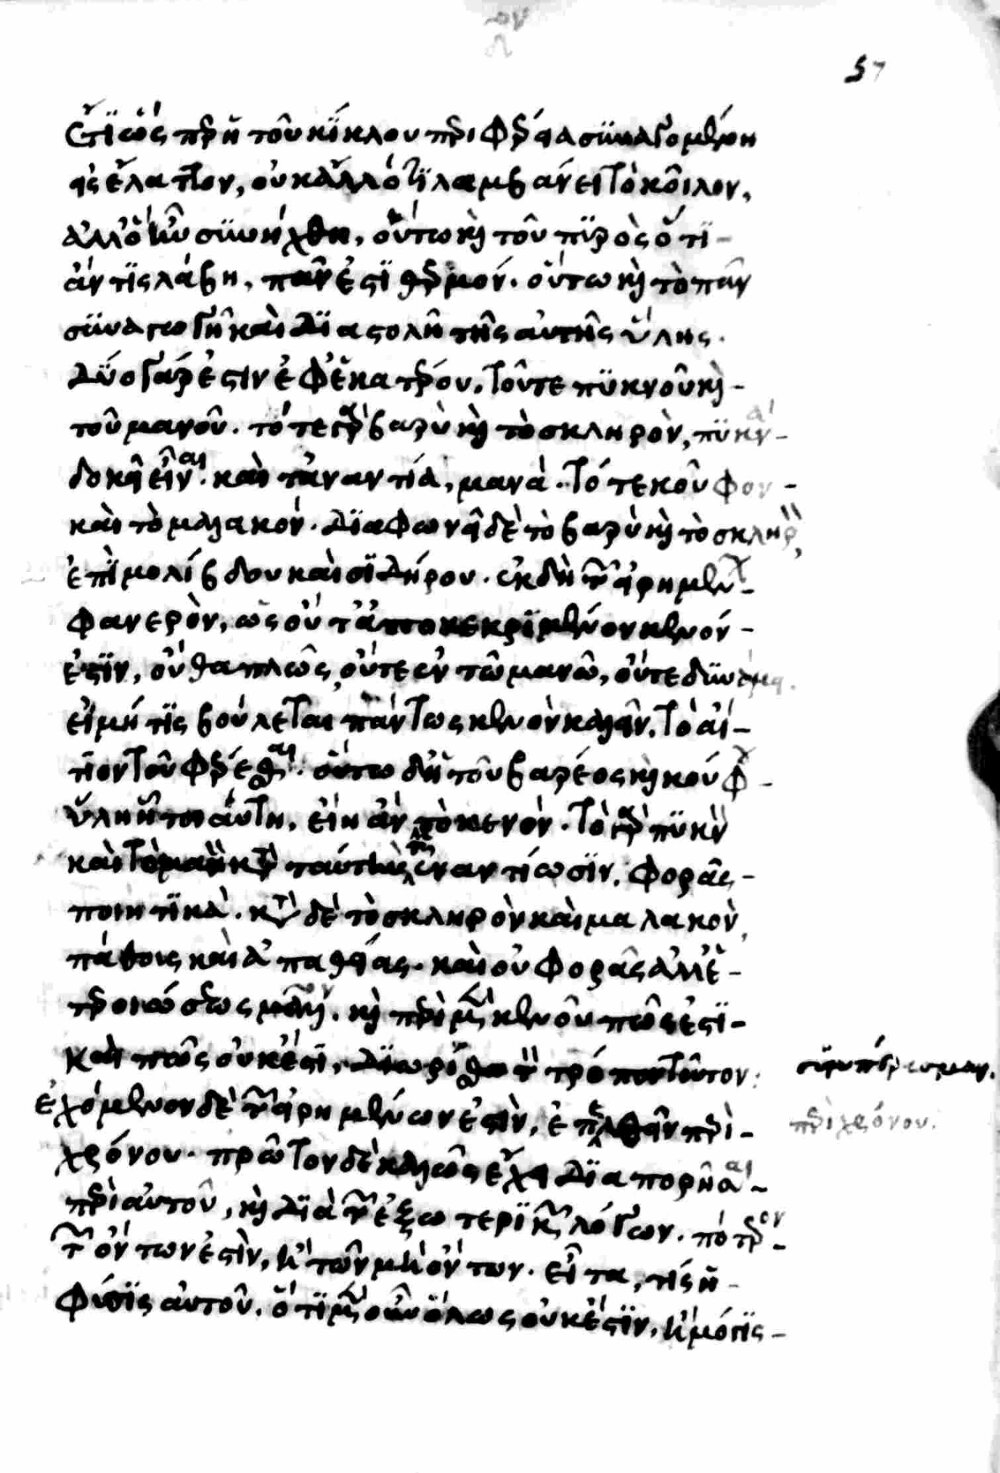 57
ἔτι ὥσπερ ἡ τοῦ κύκλου περιφέρεια συναγομένη
εἰς ἔλαττον, οὐκ ἄλλό τι λαμβάνει τὸ κοῖλον,
ἀλλ' ὃ ἦν συνήχθη, οὕτω καὶ τοῦ πυρὸς ὅ τι
ἄν τις λάβη, πᾶν ἐστι θερμόν. οὕτω καὶ τὸ πᾶν
συναγωγῆ καὶ διαστολῆ τῆς αὐτῆς ὕλης.
δύο γάρ ἐστιν ἐφ' ἑκατέρου, τοῦ τε πυκνοῦ καὶ
τοῦ μανοῦ. τό τε γὰρ βαρὺ καὶ τὸ σκληρὸν, πυκνὰ
δοκεῖ εἶναι. καὶ τἀναντία, μανά. τό τε κοῦφον
καὶ τὸ μαλακόν. διαφωνεῖ δὲ τὸ βαρὺ καὶ τὸ σκληρὸν,
ἐπὶ μολίβδου καὶ σιδήρου. ἐκ δὴ τῶν εἰρημένων
φανερὸν, ὡς οὔτ' ἀποκεκριμένον κενόν
ἐστιν, οὔθ' ἁπλῶς, οὔτε ἐν τῶ μανῶ, οὔτε δυνάμει.
εἰ μή τις βούλεται πάντως κενὸν καλεῖν, τὸ αἴ-
τιον τοῦ φέρεσθαι. οὕτω δ' ἡ τοῦ βαρέος καὶ κούφου
ὕλη ἧ τοιαύτη, εἴη ἂν τὸ κενόν. τὸ γὰρ πυκνὸν
καὶ τὸ μανὸν κατὰ ταύτην τὴν ἐναντίωσιν, φορᾶς
ποιητικά. κατὰ δὲ τὸ σκληρὸν καὶ μαλακὸν,
πάθους καὶ ἀπαθείας. καὶ οὐ φορᾶς ἀλλ' ἑ-
τεροιώσεως μᾶλλον. καὶ περὶ μὲν κενοῦ πῶς ἐστι
καὶ πῶς οὐκ ἔστι, διωρίσθω τὸν τρόπον τοῦτον:
ἐχόμενον δὲ τῶν εἰρημένων ἐστὶν, ἐπελθεῖν περὶ
χρόνου. πρῶτον δὲ καλῶς ἔχει διαπορῆσαι
περὶ αὐτοῦ, καὶ διὰ τῶν ἐξωτερικῶν λόγων. πότερον
τῶν ὄντων ἐστὶν, ἢ τῶν μὴ ὄντων. εἶτα, τίς ἡ
φύσις αὐτοῦ. ὅτι μὲν οὖν ὅλως οὐκ ἔστιν, ἢ μόγις
συμπέρασμα.
περὶ χρόνου.